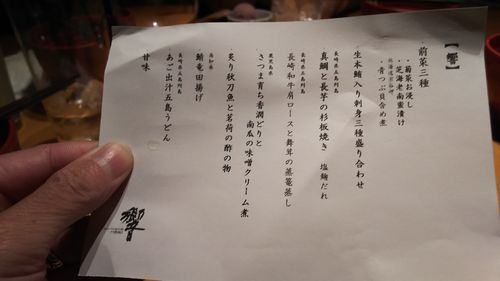 【響】
前菜三種
・菊菜お浸し
・芝海老南蛮漬け
北海道岩内沖
・青つぶ貝含め煮
生本鮪入り刺身三種盛り合わせ
長崎県五島列島
真鯛と長芋の杉板焼き 塩麹だれ
長崎県五島列島
長崎和牛肩ロースと舞茸の蒸篭蒸し
鹿児島県
さつま育ち香潤どりと
南瓜の味噌クリーム煮
炙り秋刀魚と茗荷の酢の物
高知県
鰹竜田揚げ
長崎県五島列島
あご出汁五島うどん
甘味
響